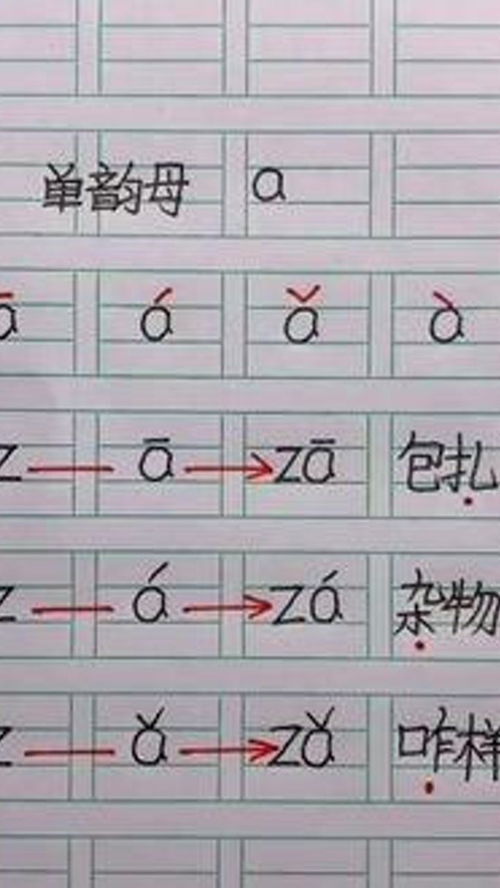 单韵母 a
ā á ǎ à
z — ā → zā 包扎
z — á → zá 杂物
z — ǎ → zǎ 咋样